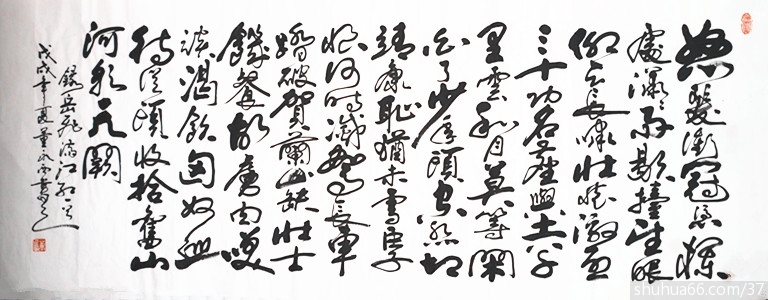 怒髮衝冠憑欄
處瀟瀟雨歇擡望眼
仰天長嘯壯懷激烈
三十功名塵與土八千
里雲和月莫等閑
白了少年頭空悲切
靖康恥猶未雪臣子
恨何時滅駕長車
踏破賀蘭山缺壯士
饑餐胡虜肉笑
談渴飲匈奴血
待從頭收拾舊山
河朝天闕
錄岳飛滿江紅一首
戊戌年夏董永書之
shuhua66.com/37